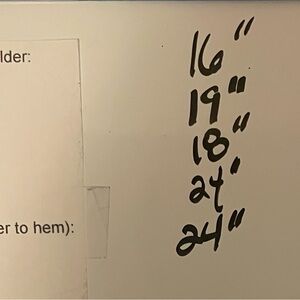 lder:
16"
19"
18"
24"
er to hem):
24"